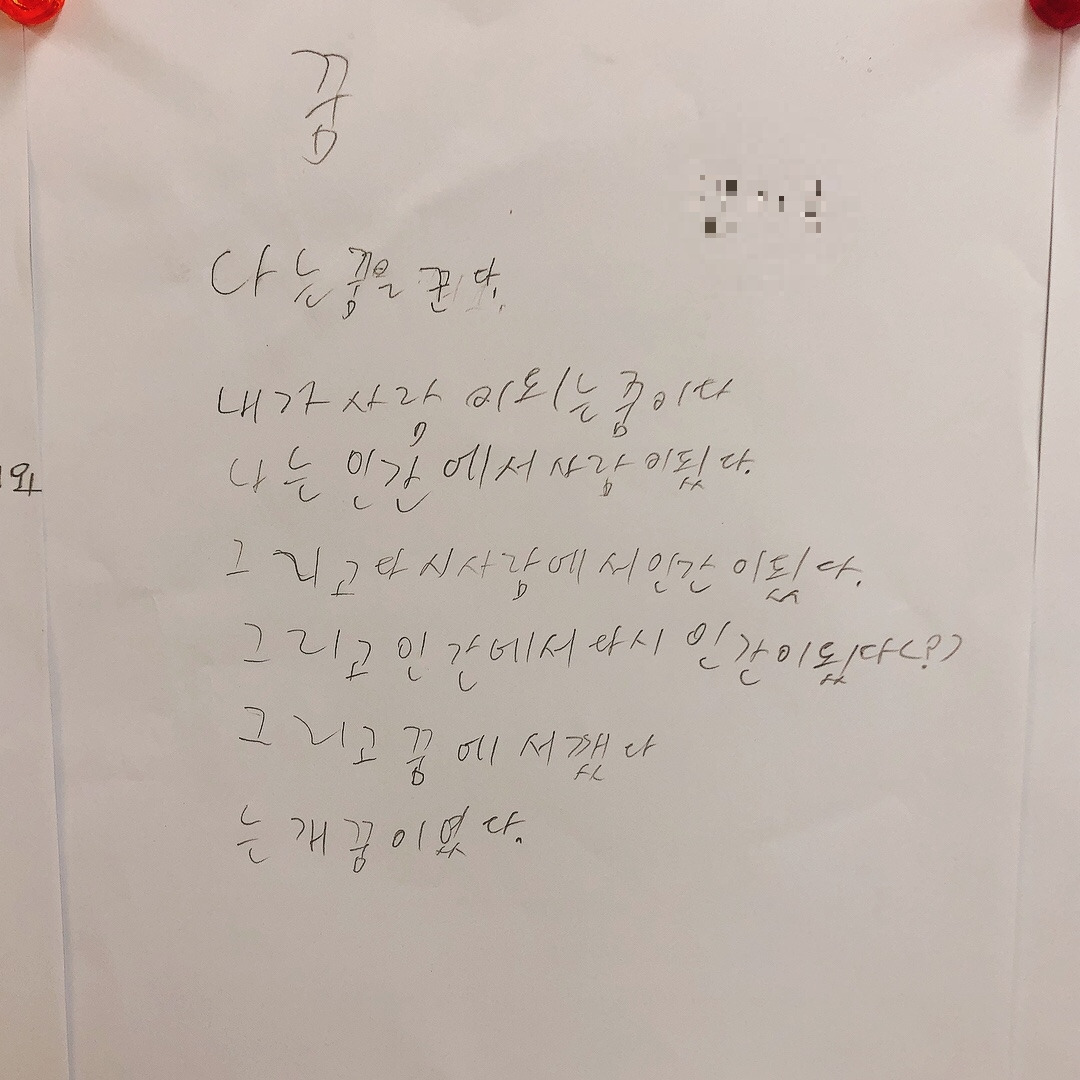 꿈
나는 꿈을 꾼다.
내가 사람이 되는 중이다
나는 인간에서 사람이 됬다.
그리고 다시 사람에서 인간이 됬다.
그리고 인간에서 다시 인간이 됬다(?)
그리고 꿈에서 깼다
는 개꿈이였다.